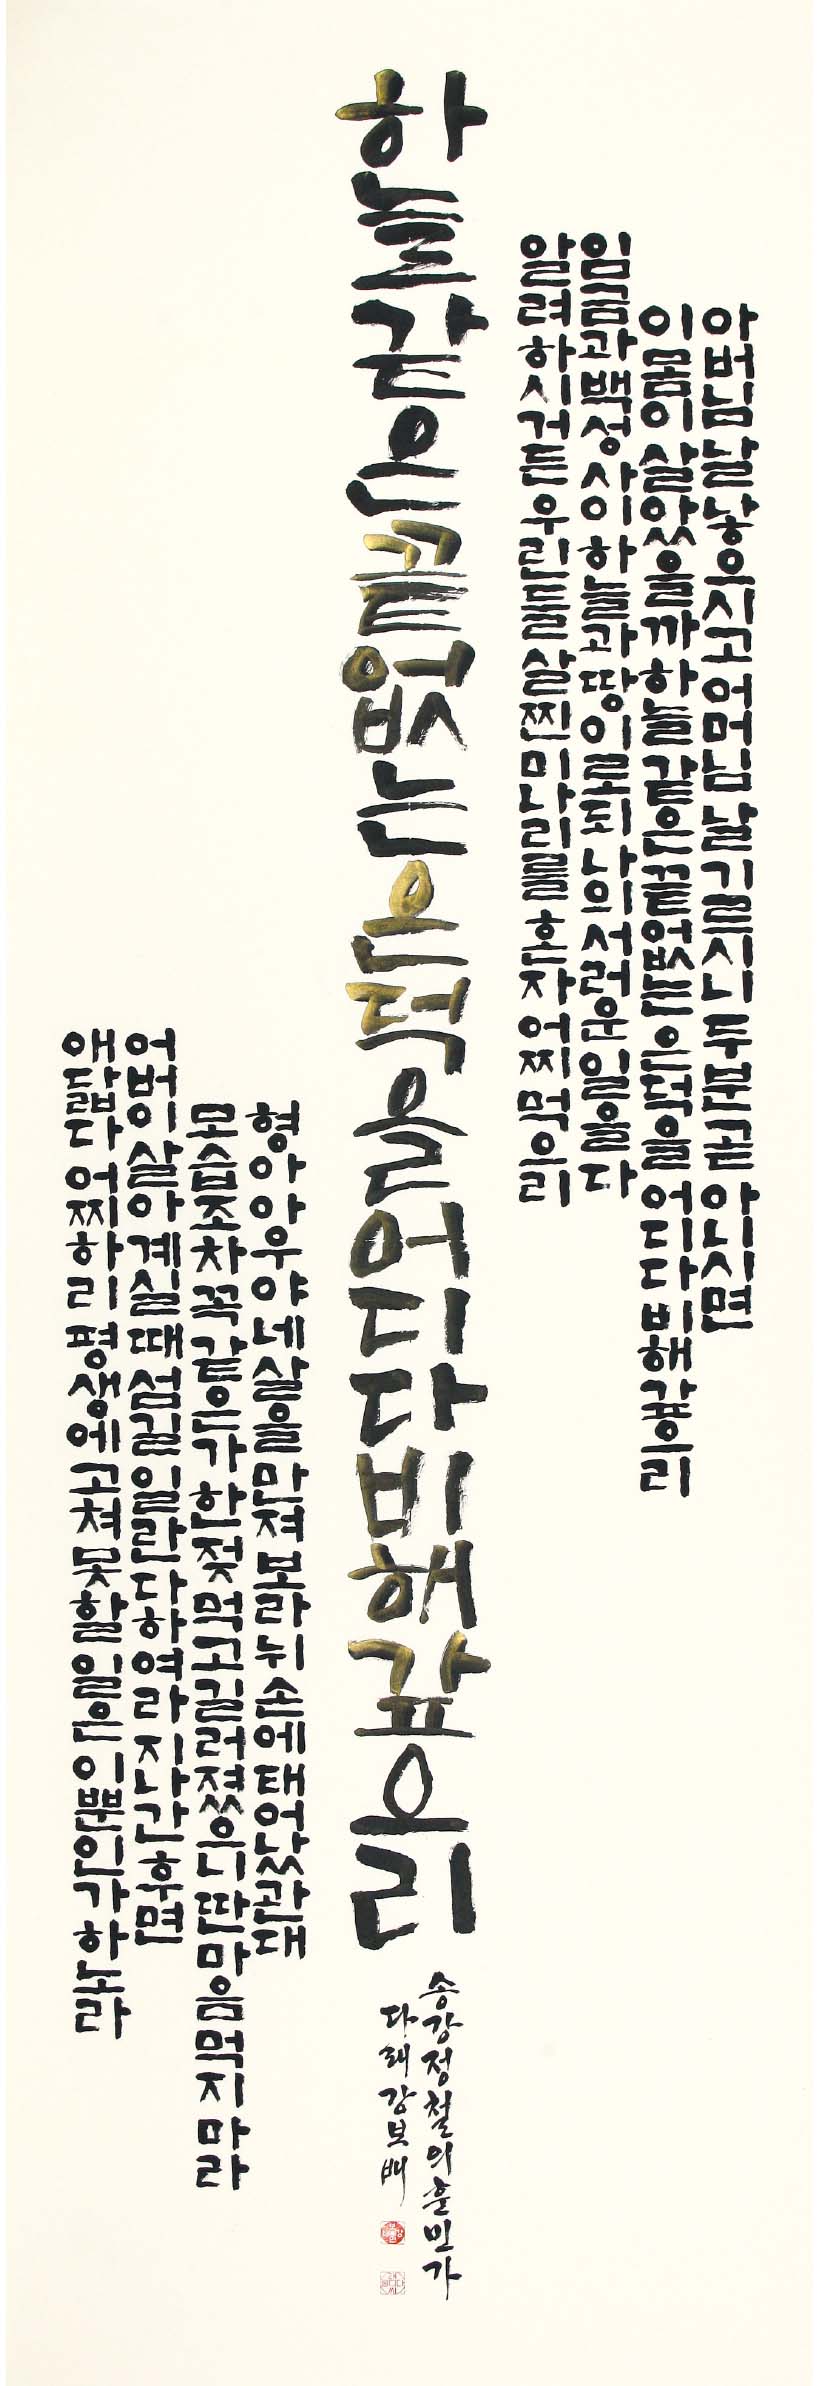 아버님 날 낳으시고 어머님 날 기르시니 두분곧 아니시면
이 몸이 살았을까 하늘 같은 끝없는 은덕을 어디다 비해 갚으리
임금과 백성 사이 하늘과 땅이로되 나의 서러운 일을 다
알려 하시거든 우린들 살찐 미나리를 혼자 어찌 먹으리
하늘같은끝없는은덕을어디다비해갚으리
형아 아우야 네 살을 만져 보라 뉘 손에 태어났관대
모습조차 꼭 같은가 한 젖 먹고 길러졌으니 딴 마음 먹지 마라
어버이 살아 계실 때 섬길 일란 다 하여라 지나간 후면
애닯다 어찌하리 평생에 고쳐 못할 일은 이뿐인가 하노라
송강정철의훈민가
다래강보배